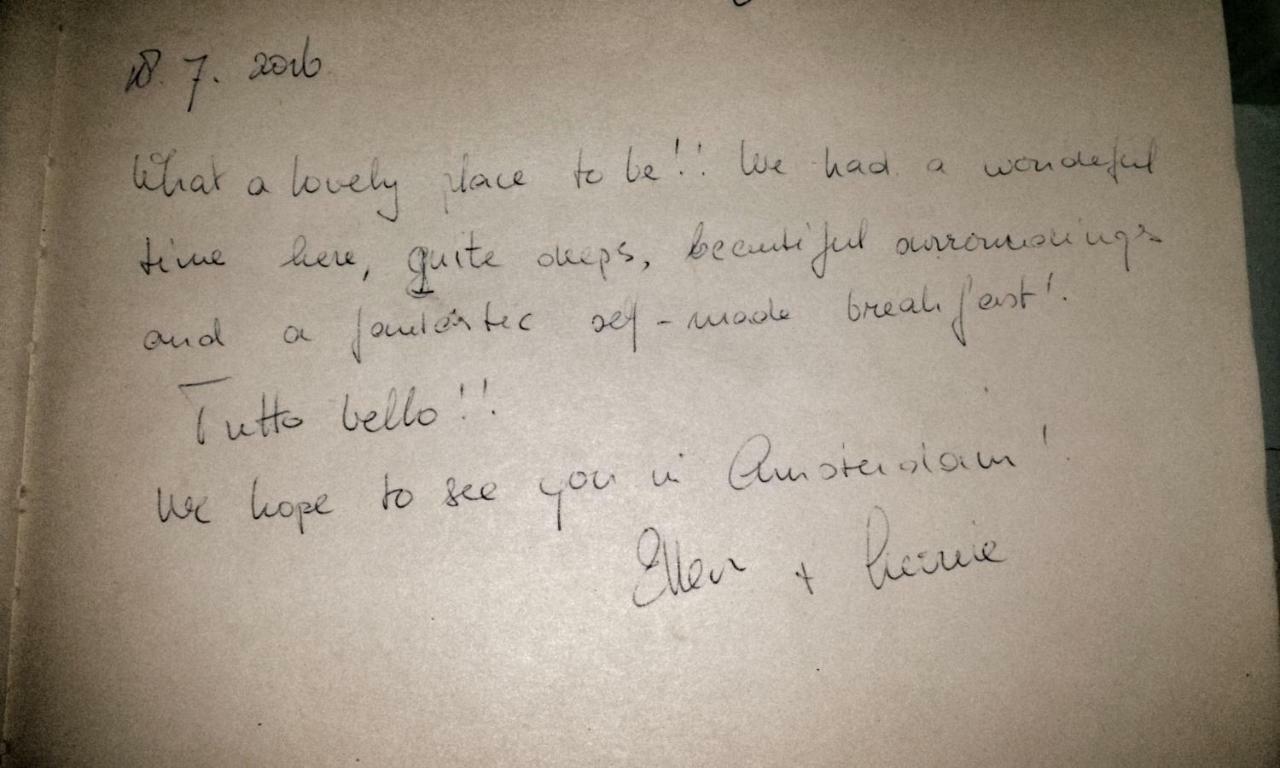 18. 7. 2016
What a lovely place to be!! We had a wonderful
time here, quite sleeps, beautiful surroundings
and a fantastic self-made breakfast!
Tutto bello!!
We hope to see you in Amsterdam!
Ellen +